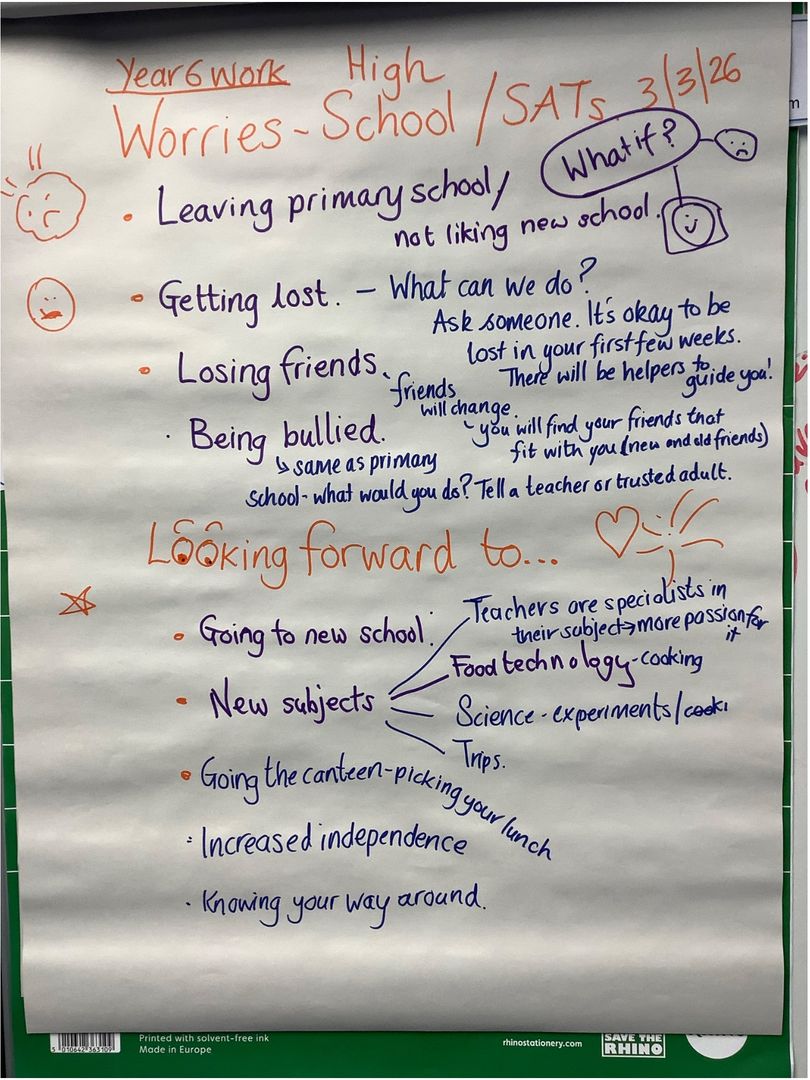 Year 6 work High
Worries - School / SATs 3/3/26
What if?
• Leaving primary school/
not liking new school.
• Getting lost. – What can we do?
Ask someone. It's okay to be
lost in your first few weeks.
There will be helpers to
guide you!
• Losing friends.
friends
will change.
you will find your friends that
fit with you (new and old friends)
• Being bullied.
↳ same as primary
school - what would you do? Tell a teacher or trusted adult.
Looking forward to...
• Going to new school.
• New subjects
Teachers are specialists in
their subject → more passion for
it
Food technology - cooking
Science - experiments/
Trips.
• Going the canteen - picking your lunch
• Increased independence
• Knowing your way around.
Printed with solvent-free ink
Made in Europe
rhinostationery.com
SAVE THE
RHINO